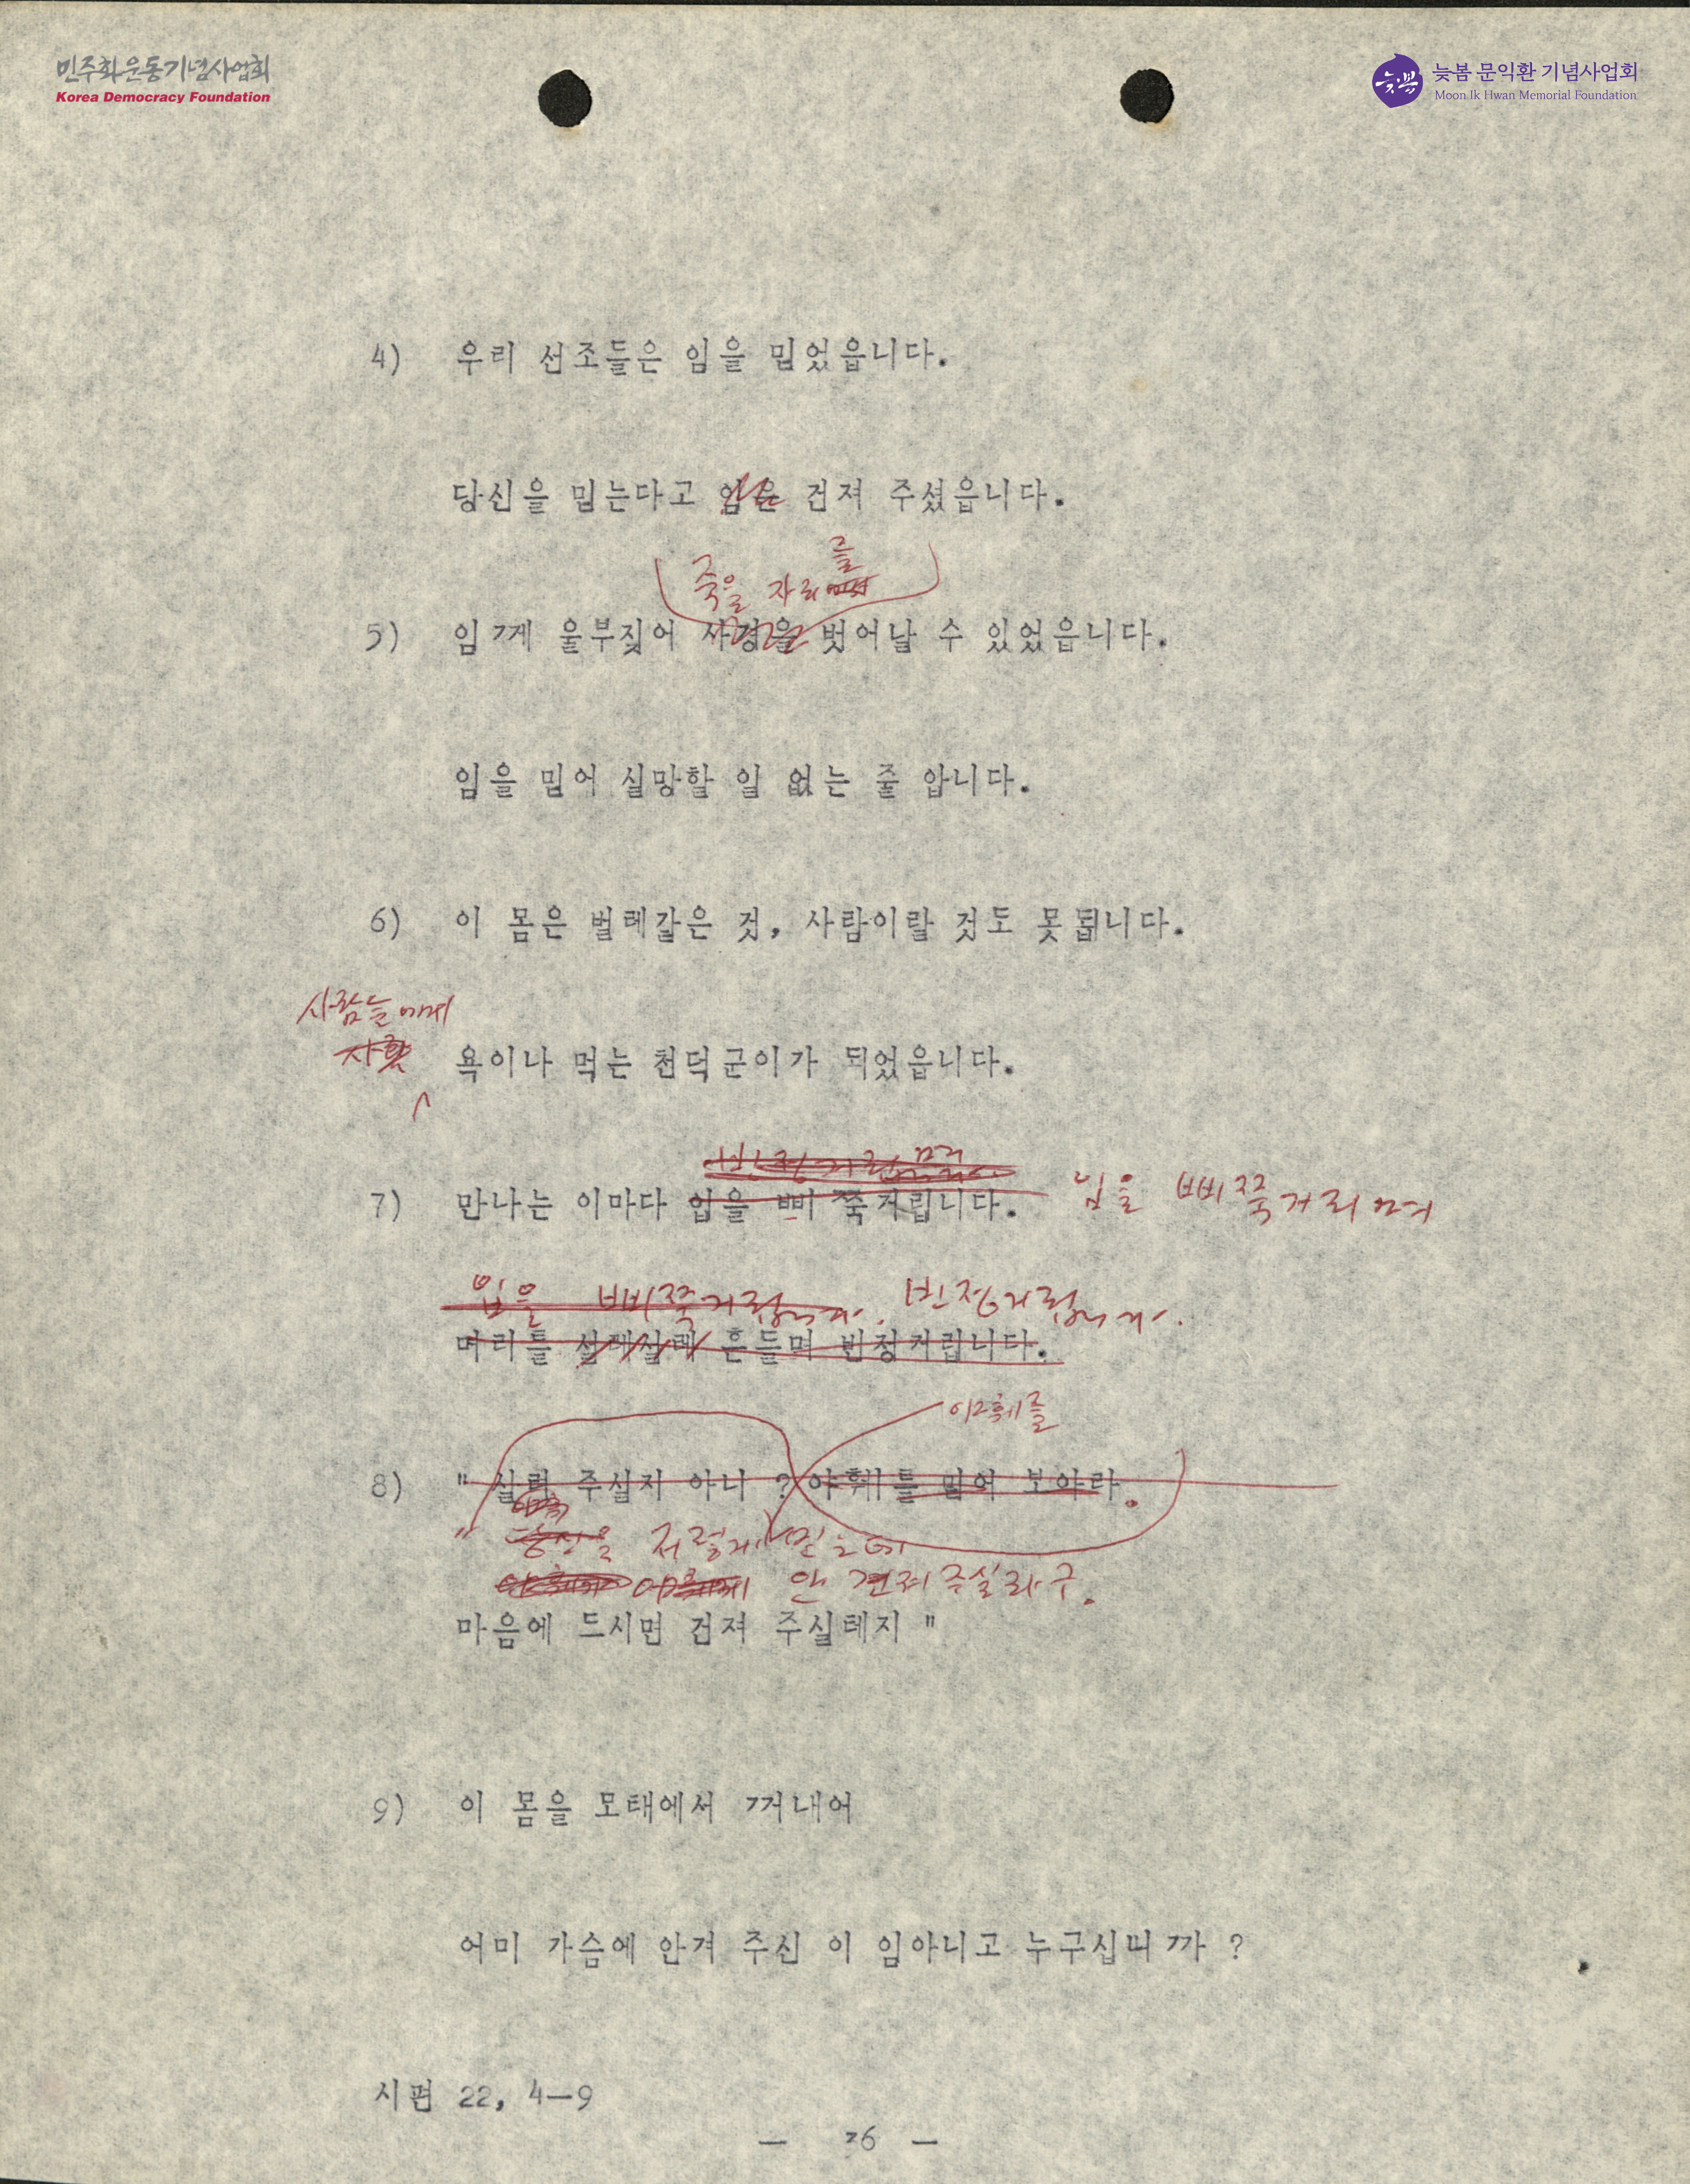 민주화운동기념사업회
Korea Democracy Foundation
늦봄
늦봄 문익환 기념사업회
Moon Ik Hwan Memorial Foundation
4) 우리 선조들은 임을 믿었읍니다.
당신을 믿는다고 임은 건져 주셨읍니다.
를
죽을 자리
5) 임께 울부짖어 사경을 벗어날 수 있었읍니다.
임을 믿어 실망할 일 없는 줄 압니다.
6) 이 몸은 벌레같은 것, 사람이랄 것도 못됩니다.
사람들에게
욕이나 먹는 천덕군이가 되었읍니다.
빈정거리며
7) 만나는 이마다 입을 삐쭉거립니다. 입을 삐쭉거리며
입을 삐쭉거립니다. 빈정거립니다.
머리를 설레설레 흔들며 빈정거립니다.
야훼를
8) " 살려 주실지 아니 ? 야훼를 믿어 보아라.
" 당신을 저렇게 믿는데
안 건져주실라구.
마음에 드시면 건져 주실테지 "
9) 이 몸을 모태에서 꺼내어
어미 가슴에 안겨 주신 이 임아니고 누구십니까 ?
시편 22, 4—9
— 36 —